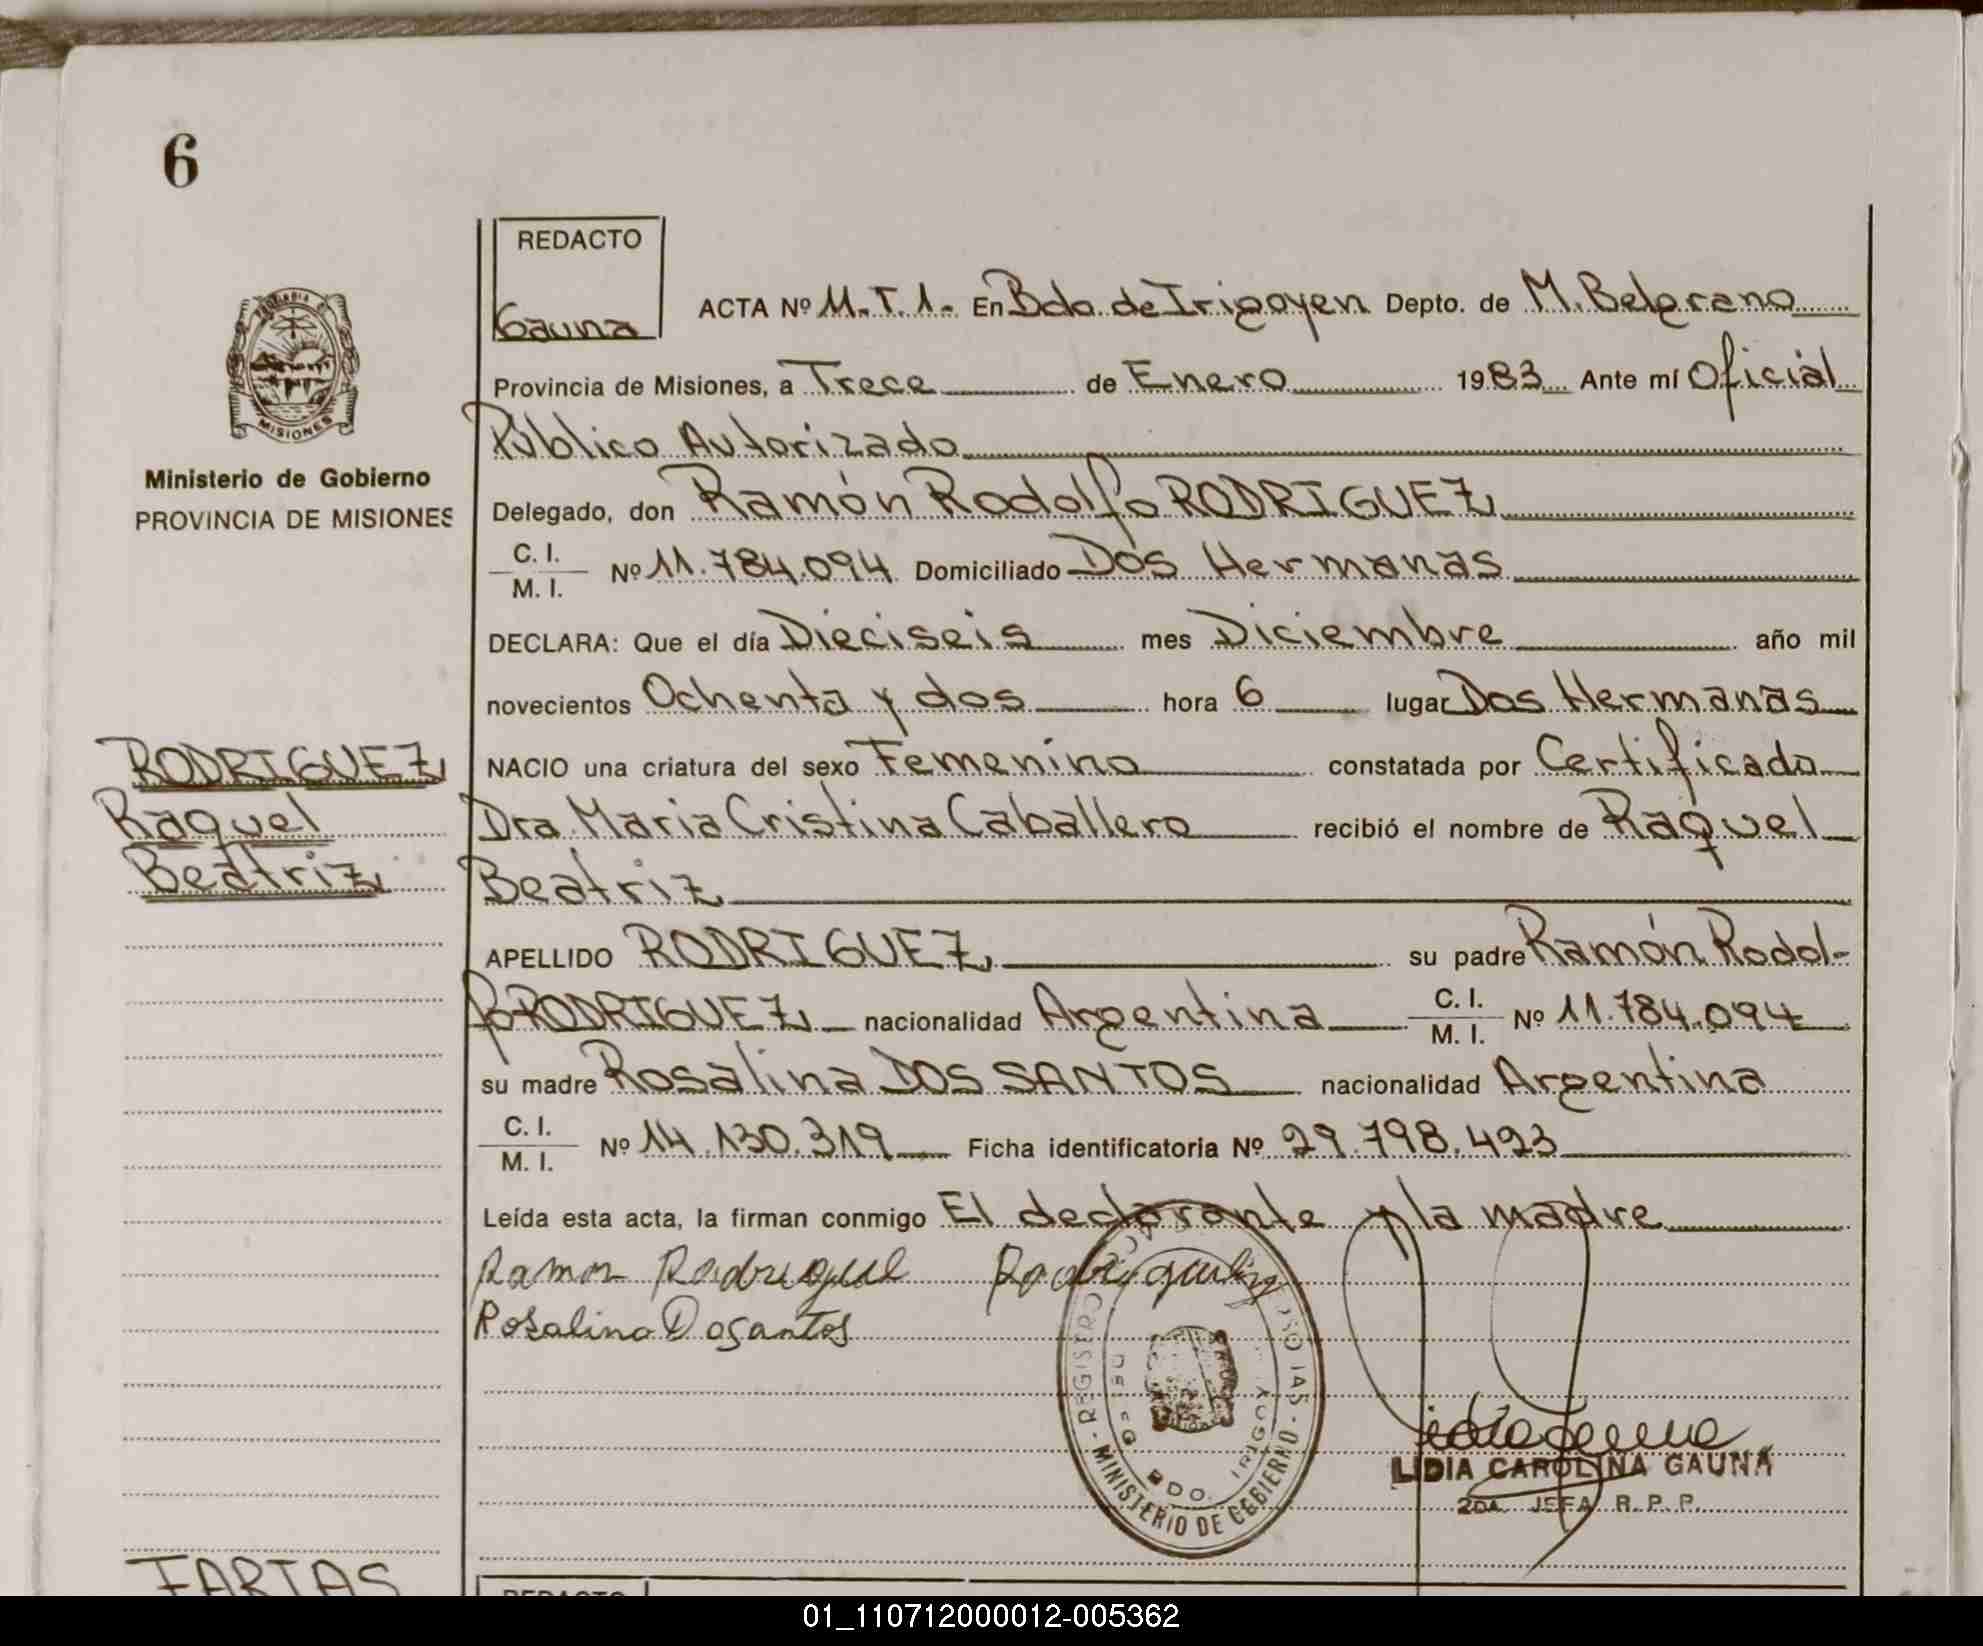 6
REDACTO
Gauna
ACTA Nº M.T.1. En Bdo. de Irigoyen Depto. de M. Belgrano
MISIONES
Provincia de Misiones, a Trece de Enero 1983 Ante mí Oficial
Público Autorizado
Ministerio de Gobierno
PROVINCIA DE MISIONES
Delegado, don Ramón Rodolfo RODRIGUEZ
C. I.
M. I. Nº 11.784.094 Domiciliado Dos Hermanas
DECLARA: Que el día Dieciseis mes Diciembre año mil
novecientos Ochenta y dos hora 6 lugar Dos Hermanas
RODRIGUEZ
Raquel
Beatriz
NACIO una criatura del sexo Femenino constatada por Certificado
Dra. Maria Cristina Caballero recibió el nombre de Raquel
Beatriz
APELLIDO RODRIGUEZ su padre Ramón Rodol-
fo RODRIGUEZ nacionalidad Argentina C. I. M. I. Nº 11.784.094
su madre Rosalina DOS SANTOS nacionalidad Argentina
C. I.
M. I. Nº 14.130.319 Ficha identificatoria Nº 29.798.423
Leída esta acta, la firman conmigo El declarante y la madre
Ramon Rodriguez
Rosalina Dosantos
MINISTERIO DE GOBIERNO
BDO. IRIGOY
LIDIA CAROLINA GAUNA
2DA. JEFA R. P. P.
FARIAS
REDACTO
01_110712000012-005362